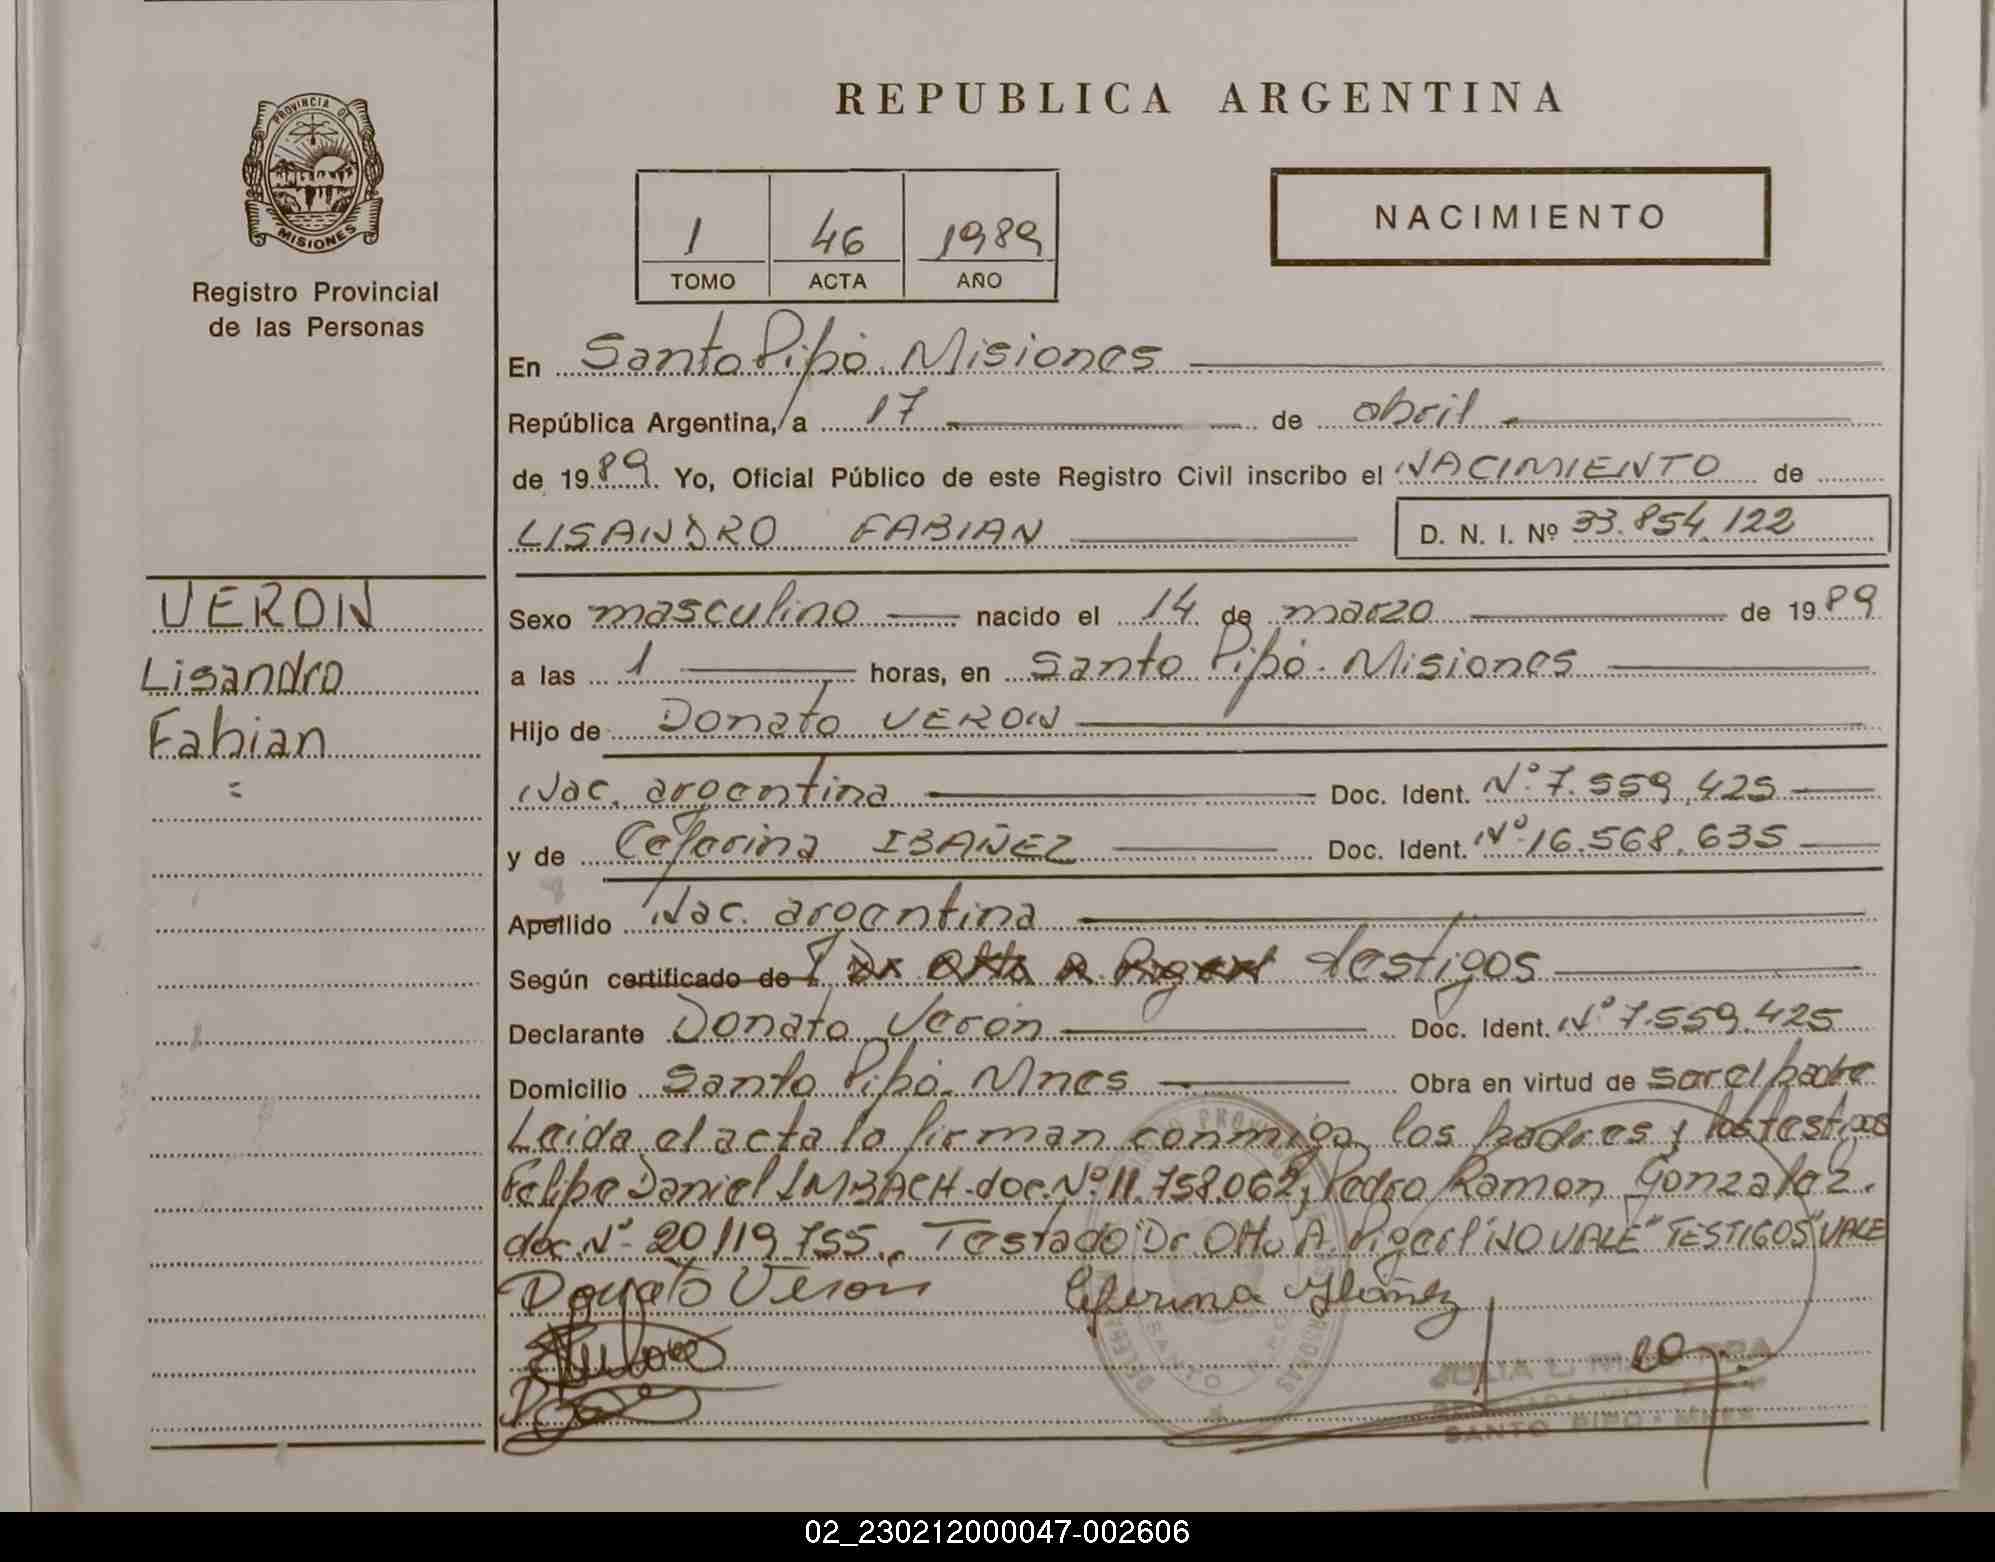 PROVINCIA DE
MISIONES
Registro Provincial
de las Personas
VERON
Lisandro
Fabian
=
REPUBLICA ARGENTINA
1 46 1989
TOMO ACTA AÑO
NACIMIENTO
En Santo Pipó. Misiones
República Argentina, a 17 de abril
de 1989. Yo, Oficial Público de este Registro Civil inscribo el NACIMIENTO de
LISANDRO FABIAN D. N. I. Nº 33.854.122
Sexo masculino nacido el 14 de marzo de 1989
a las 1 horas, en Santo Pipó. Misiones
Hijo de Donato VERON
Nac. argentina Doc. Ident. Nº 7.559.425
y de Ceferina IBAÑEZ Doc. Ident. Nº 16.568.635
Apellido Nac. argentina
Según certificado de Dr Otto A testigos
Declarante Donato Verón Doc. Ident. Nº 7.559.425
Domicilio Santo Pipó. Mnes Obra en virtud de ser el padre
Leida el acta la firman conmigo los padres y los testigos
Felipe Daniel IMBACH-doc. Nº 11.758.062, Pedro Ramon Gonzalez.
doc Nº 20119.755. Testado Dr. Otto A. NO VALE "TESTIGOS" VALE
Donato Veron Ceferina Ibañez
JULIA
SANTO PIPO - MNES
02_230212000047-002606